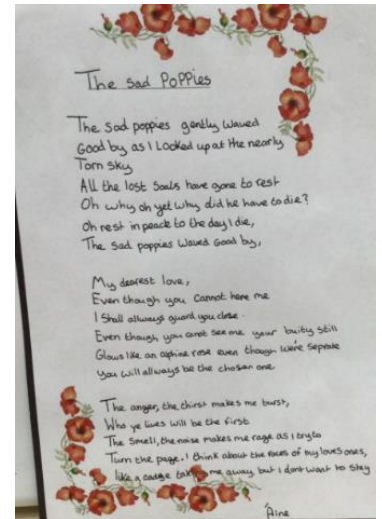 The sad Poppies
The sad poppies gently waved
Good by as I Looked up at the nearly
Torn sky
All the lost Souls have gone to rest
Oh why oh yet why did he have to die?
Oh rest in peace to the day I die,
The sad poppies waved Good by,
My dearest love,
Even though you cannot here me
I shall allways guard you close.
Even though you canot see me your buity still
Glows like an alpine rose even though we're seprate
You will allways be the chosen one
The anger, the thirst makes me burst,
Who ye lives will be the first
The smell, the noise makes me rage as I try to
Turn the page. I think about the faces of my loves ones,
like a cadge taking me away but I dont want to stay
Áine